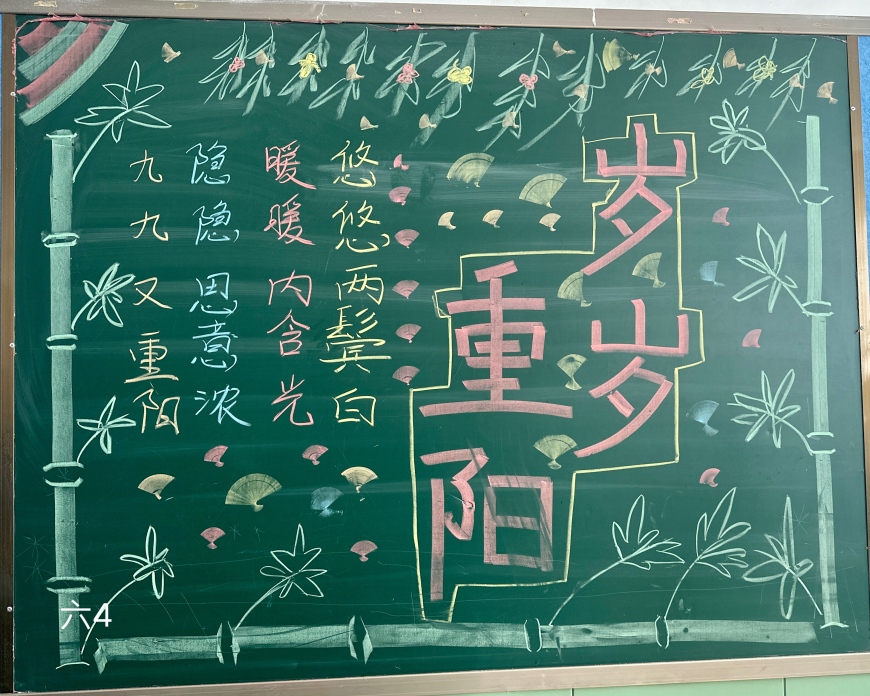 岁岁
重阳
悠悠两鬓白
暖暖内含光
隐隐思意浓
九九又重阳
六4